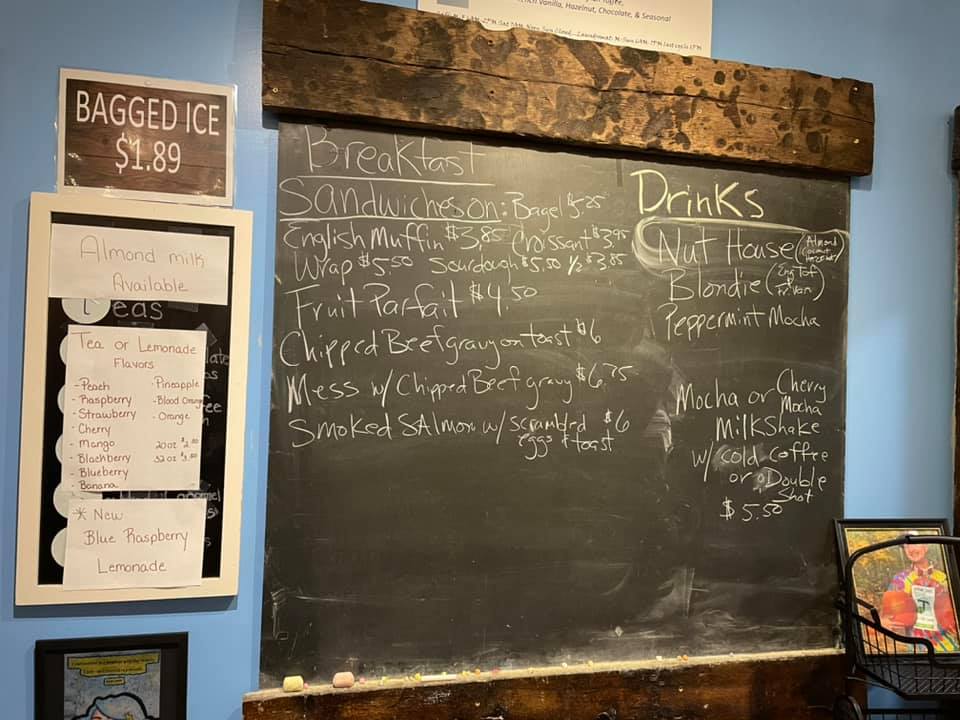 French Vanilla, Hazelnut, Chocolate, & Seasonal
BAGGED ICE
$1.89
Almond milk
Available
eas
Tea or Lemonade
Flavors
- Peach
- Raspberry
- Strawberry
- Cherry
- Mango
- Blackberry
- Blueberry
- Banana
- Pineapple
- Blood Orange
- Orange
20 oz
32 oz
* New
Blue Raspberry
Lemonade
Breakfast
Sandwiches on: Bagel $5.25
English Muffin $3.85 Croissant $3.95
Wrap $5.50 Sourdough $5.50 1/2 $3.85
Fruit Parfait $4.50
Chipped Beef gravy on toast $6
Mess w/ Chipped Beef gravy $6.75
Smoked SAlmon w/ scrambled $6
eggs & toast
Drinks
Nut House (Almond
Coconut
Hazelnut)
Blondie (Eng Tof
Fr Van)
Peppermint Mocha
Mocha or Cherry
Mocha
MilkShake
w/ cold coffee
or Double
Shot
$5.50